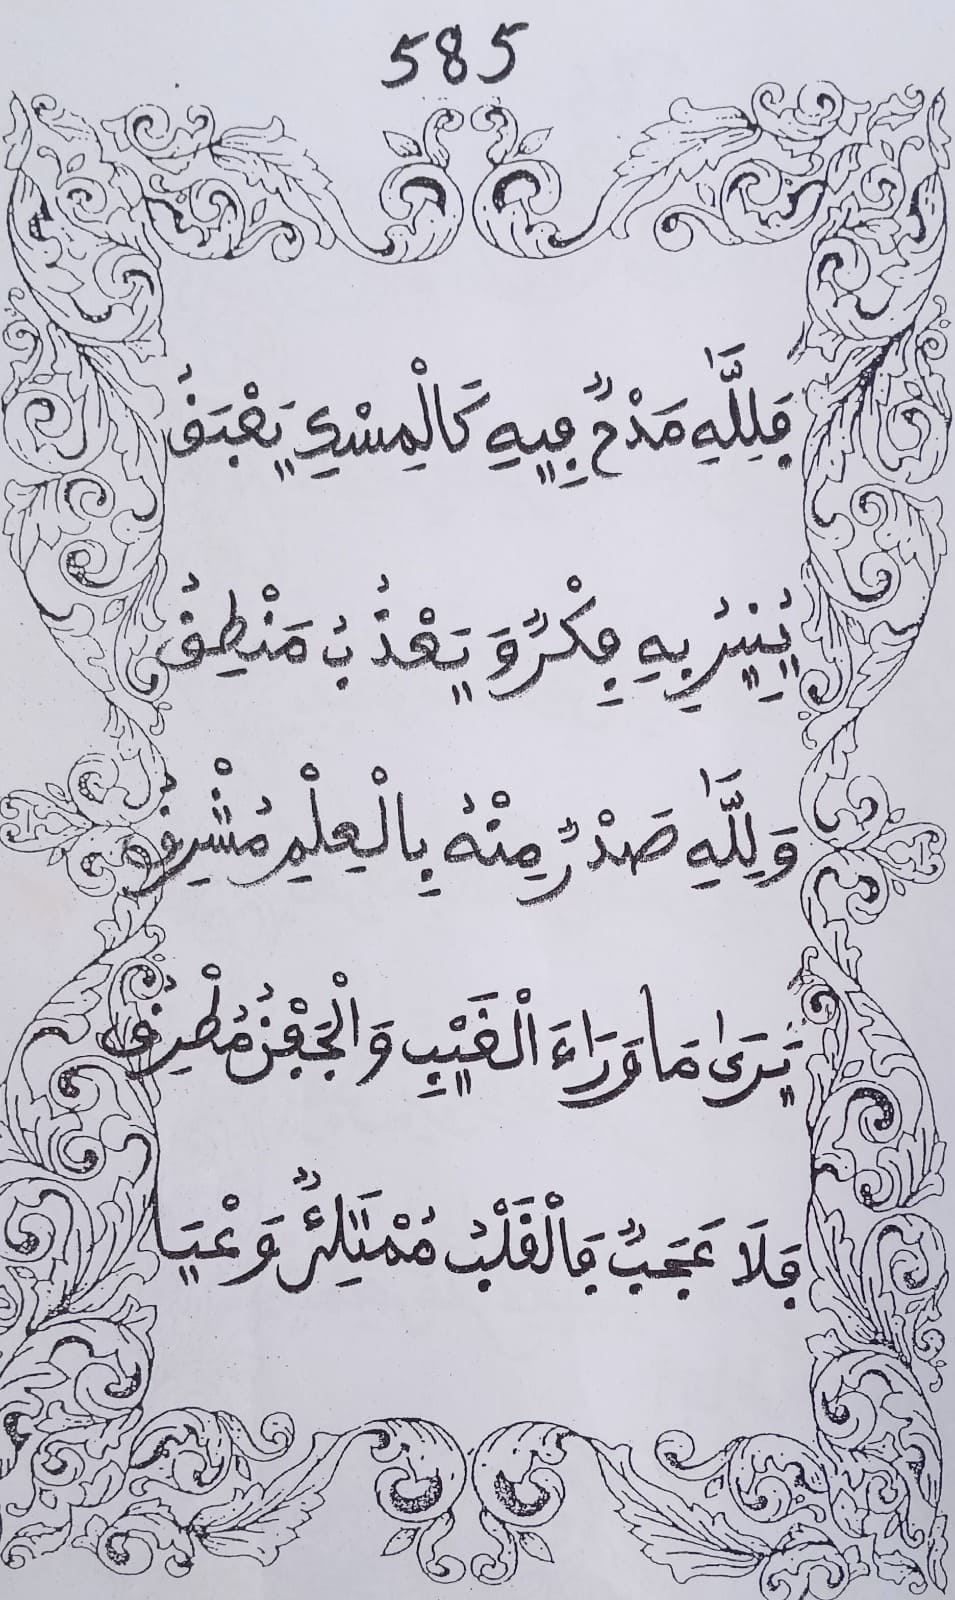 585
فَلِلَّهِ مَدْحٌ فِيهِ كَالْمِسْكِ يَعْبَقُ
يُنِيرُ بِهِ فِكْرٌ وَ يَعْذُبُ مَنْطِقُ
وَلِلَّهِ صَدْرٌ مِنْهُ بِالْعِلْمِ مُشْرِقُ
يَرَىٰ مَا وَرَاءَ الْغَيْبِ وَالْجَفْنُ مُطْرِقُ
فَلَا عَجَبٌ فَالْقَلْبُ مُمْتَلِئٌ وَعْيَا